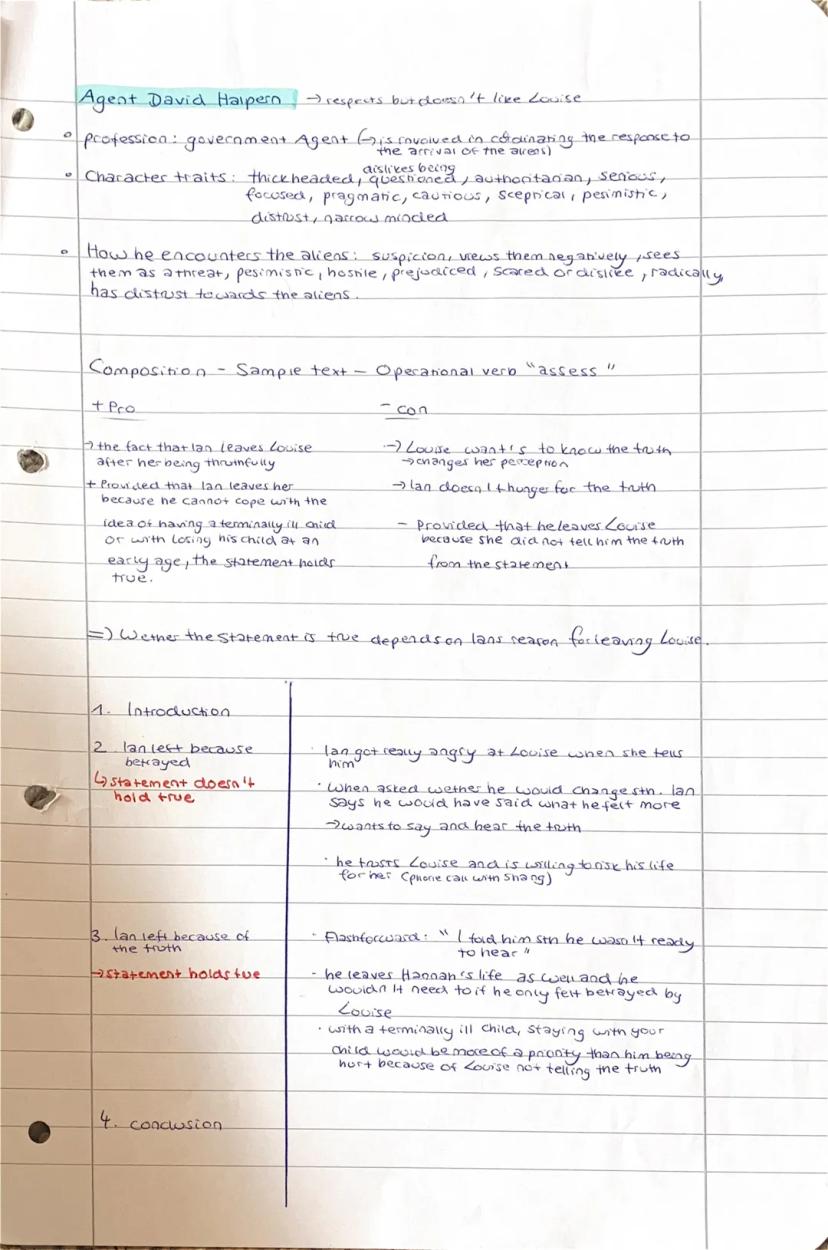 Agent David Halpern → respects but doesn't like Louise
profession: government Agent (→ is involved in cordinating the response to
the arrival of the aliens)
dislikes being
Character traits: thickheaded, questioned, authoritarian, serious,
focused, pragmatic, cautious, sceptical, pesimistic,
distrust, narrow minded
How he encounters the aliens: suspicion, views them negatively, sees
them as a threat, pesimistic, hostile, prejudiced, scared or dislike, radically,
has distrust towards the aliens.
Composition - Sample text - Operational verb "assess"
+ Pro
- con
→ the fact that Ian leaves Louise
after her being thruthfully
+ Provided that Ian leaves her
because he cannot cope with the
idea of having a terminally ill child
or with losing his child at an
early age, the statement holds
true.
→ Louise want's to know the truth
→ changes her perception
→ Ian doesn't hunger for the truth
- Provided that he leaves Louise
because she did not tell him the truth
from the statement
=> Wether the statement is true depends on Ians reason for leaving Louise.
1. Introduction
2. Ian left because
betrayed
↳ statement doesn't
hold true
· Ian got really angry at Louise when she tells
him
· When asked wether he would change sth. Ian
says he would have said what he felt more
→ wants to say and hear the truth
· he trusts Louise and is willing to risk his life
for her (phone call with Shang)
3. Ian left because of
the truth
→ statement holds tue
· Flashforward: "I told him sth he wasn't ready
to hear"
- he leaves Hannah's life as well and he
wouldn't need to if he only felt betrayed by
Louise
· with a terminally ill child, staying with your
child would be more of a priority than him being
hurt because of Louise not telling the truth
4. conclusion